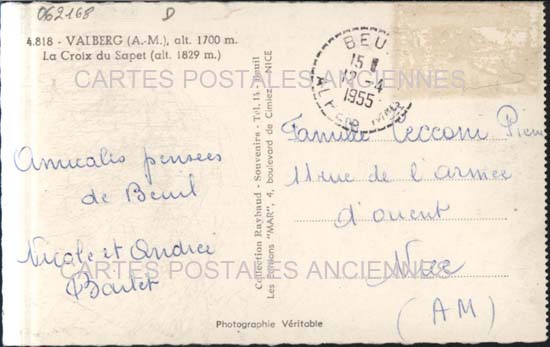 062168 D
4.818 - VALBERG (A.-M.), alt. 1700 m.
La Croix du Sapet (alt. 1829 m.)
CARTES POSTALES ANCIENNES
Amicales pensées
de Beuil
Nicole et André
Collection Raybaud - Souvenirs - Tél. 14 - Beuil
Les Editions "MAR", 4, boulevard de Cimiez - NICE
BEU
15 H
13 -4
1955
ALPES
Famille Lecconi Pierre
11 rue de l'armée
d'orient
Nice
(AM)
CARTES POSTALES ANCIENNES
Photographie Véritable